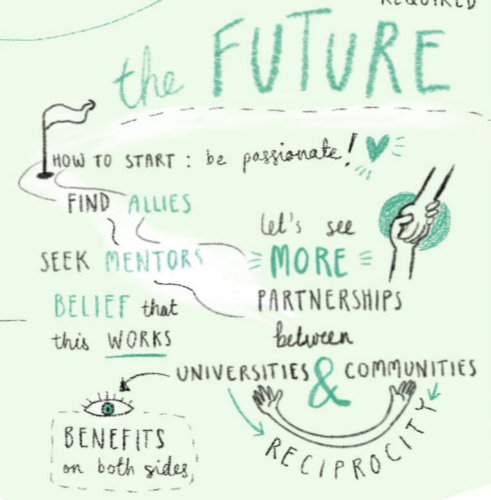 REQUIRED
the FUTURE
HOW TO START: be passionate!
FIND ALLIES
SEEK MENTORS
BELIEF that
this WORKS
let's see
MORE
PARTNERSHIPS
between
UNIVERSITIES & COMMUNITIES
RECIPROCITY
BENEFITS
on both sides